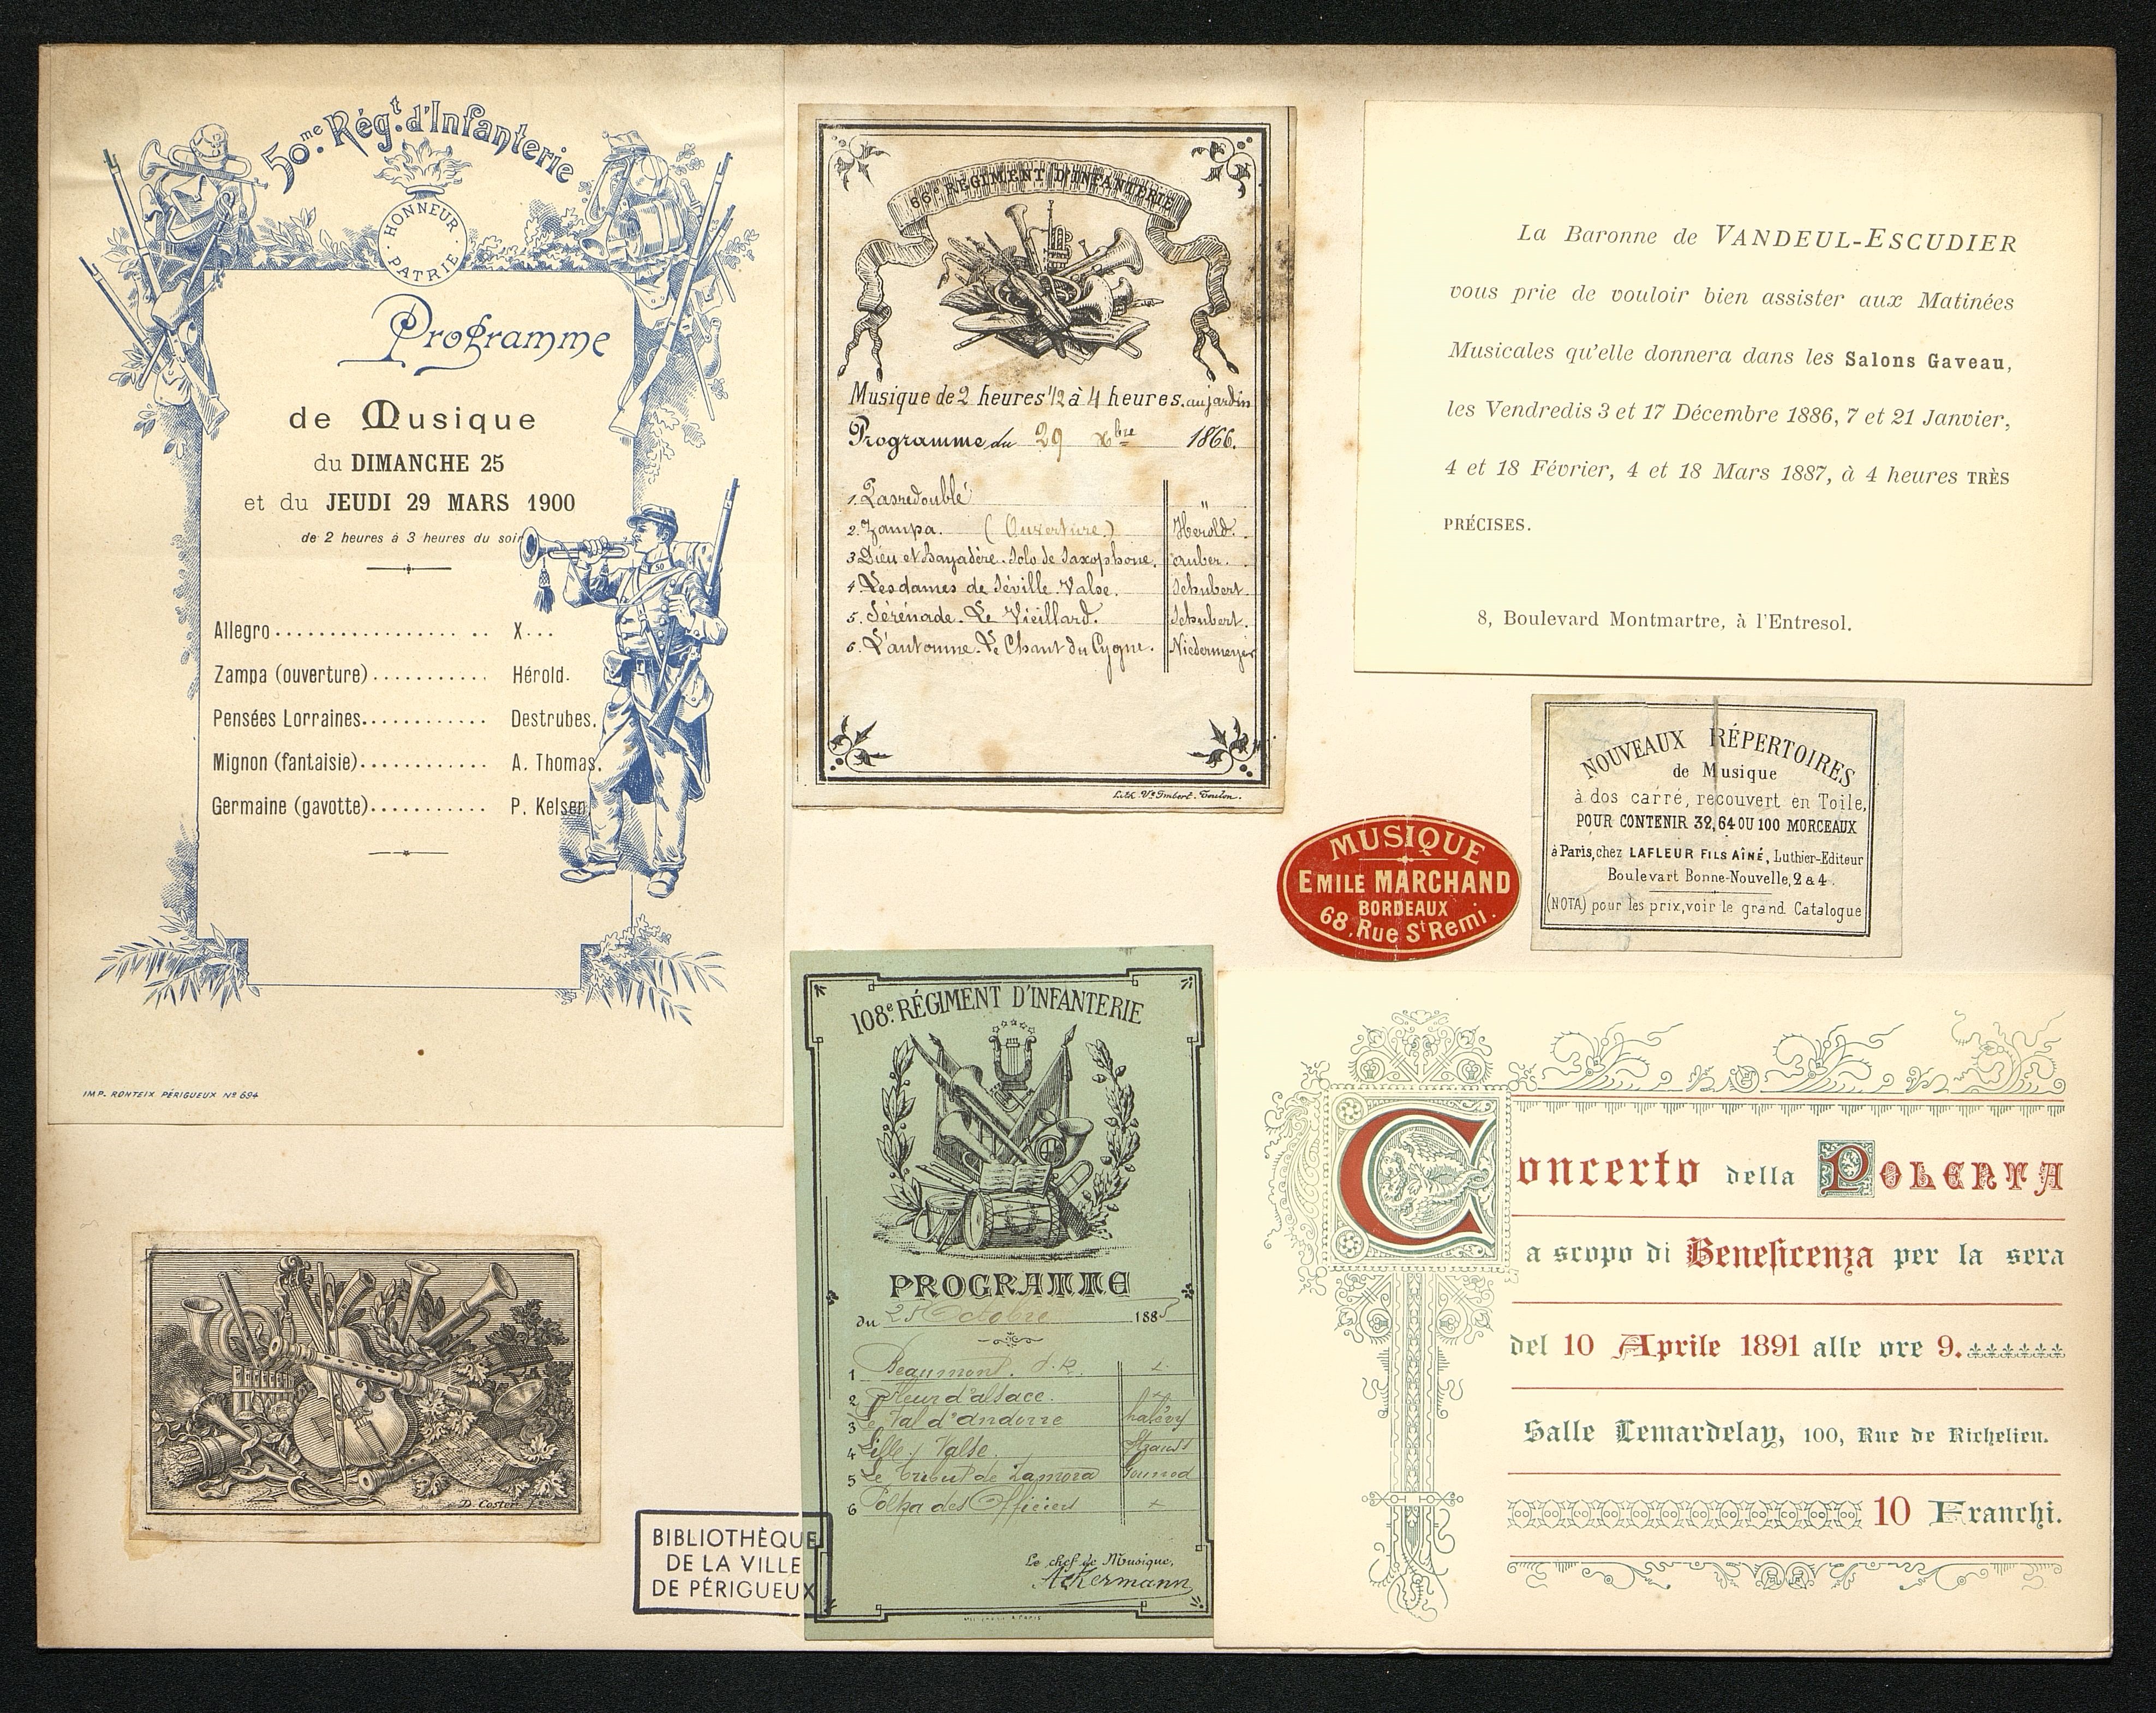 50.me Rég.t d'Infanterie
HONNEUR
PATRIE
Programme
de Musique
du DIMANCHE 25
et du JEUDI 29 MARS 1900
de 2 heures à 3 heures du soir
Allegro X...
Zampa (ouverture) Hérold.
Pensées Lorraines Destrubes.
Mignon (fantaisie) A. Thomas.
Germaine (gavotte) P. Kelsen
50
IMP. RONTEIX PÉRIGUEUX No 694
66e RÉGIMENT D'INFANTERIE
Musique de 2 heures 1/2 à 4 heures. au jardin
Programme du 29 xbre 1866.
1. Pasredoublé "
2. Zampa. (Ouverture.) Herold.
3 Dieu et Bayadère. Solo de Saxophone. Auber.
4 Les dames de Séville. Valse. Schubert.
5. Sérénade. Le Vieillard. Schubert.
6. L'automne. Le Chant du Cygne. Niedermeyer
Lith. Ve Imbert. Toulon.
La Baronne de VANDEUL-ESCUDIER
vous prie de vouloir bien assister aux Matinées
Musicales qu'elle donnera dans les Salons Gaveau,
les Vendredis 3 et 17 Décembre 1886, 7 et 21 Janvier,
4 et 18 Février, 4 et 18 Mars 1887, à 4 heures TRÈS
PRÉCISES.
8, Boulevard Montmartre, à l'Entresol.
NOUVEAUX RÉPERTOIRES
de Musique
à dos carré, recouvert en Toile,
POUR CONTENIR 32, 64 OU 100 MORCEAUX
à Paris, chez LAFLEUR FILS AÎNÉ, Luthier-Editeur
Boulevart Bonne-Nouvelle, 2 & 4.
(NOTA) pour les prix, voir le grand Catalogue
MUSIQUE
EMILE MARCHAND
BORDEAUX
68, Rue St Remi.
108e RÉGIMENT D'INFANTERIE
PROGRAMME
du 25 Octobre 1885
1 Beaumont. P.R.
2 Fleur d'alsace.
3 Le Val d'andorre halévy
4 Valse. Strauss
5 Le tribut de Zamora Gounod
6 Polka des Officiers
Le chef de Musique,
Ackermann
Concerto della POLENTA
a scopo di Beneficenza per la sera
del 10 Aprile 1891 alle ore 9.
Salle Lemardelay, 100, Rue de Richelieu.
10 Franchi.
D. Coster f.
BIBLIOTHÈQUE
DE LA VILLE
DE PÉRIGUEUX